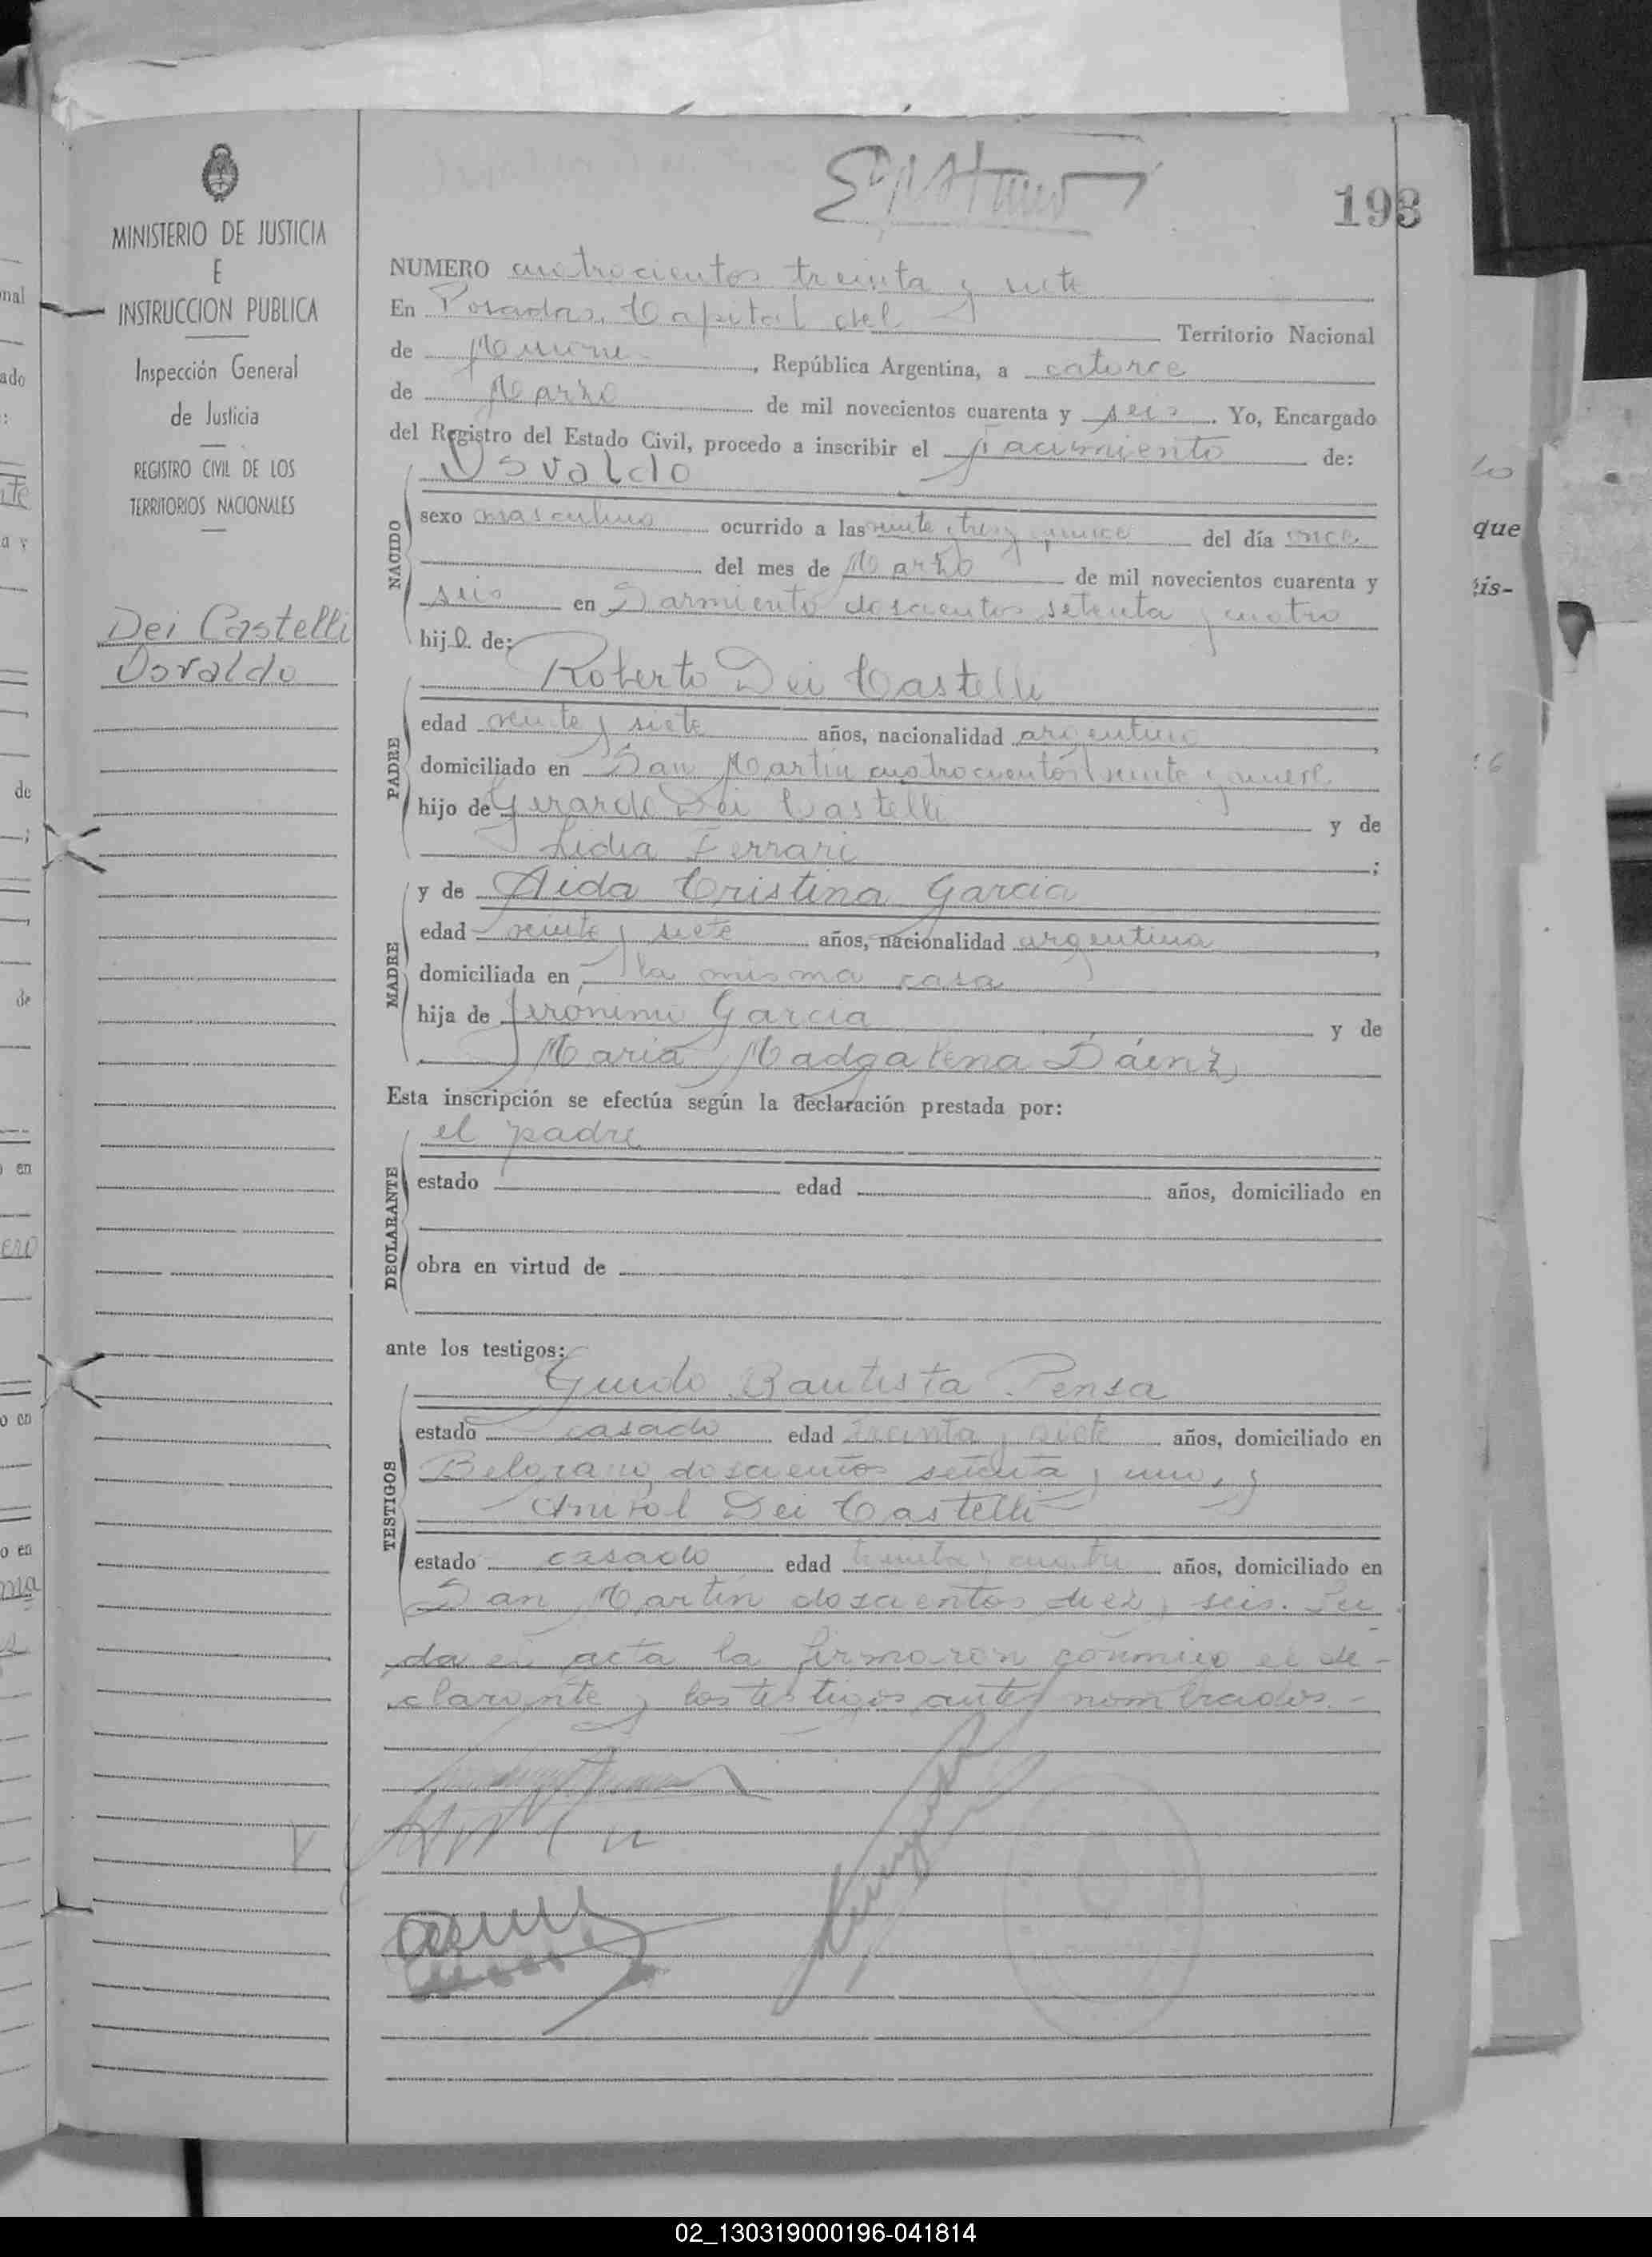 193
MINISTERIO DE JUSTICIA
E
INSTRUCCION PUBLICA
Inspección General
de Justicia
REGISTRO CIVIL DE LOS
TERRITORIOS NACIONALES
Dei Castelli
Osvaldo
NUMERO cuatrocientos treinta y siete
En Posadas, Capital del Territorio Nacional
de Misiones, República Argentina, a catorce
de Marzo de mil novecientos cuarenta y seis. Yo, Encargado
del Registro del Estado Civil, procedo a inscribir el nacimiento de:
Osvaldo
NACIDO
sexo masculino ocurrido a las veinte y tres y quince del día once
del mes de Marzo de mil novecientos cuarenta y
seis en Sarmiento doscientos setenta y cuatro
hijo de:
Roberto Dei Castelli
PADRE
edad veinte y siete años, nacionalidad argentino,
domiciliado en San Martin cuatrocientos veinte y nueve
hijo de Gerardo Dei Castelli y de
Lidia Ferrari;
y de Aida Cristina Garcia
MADRE
edad veinte y siete años, nacionalidad argentina,
domiciliada en la misma casa
hija de Jerónimo García y de
María Madgalena Sáenz
Esta inscripción se efectúa según la declaración prestada por:
el padre
DECLARANTE
estado edad años, domiciliado en
obra en virtud de
ante los testigos:
Guido Bautista Pensa
TESTIGOS
estado casado edad treinta y siete años, domiciliado en
Belgrano doscientos setenta y uno, y
Anibal Dei Castelli
estado casado edad treinta y cuatro años, domiciliado en
San Martín doscientos diez y seis. Lei
da el acta la firmaron conmigo el de-
clarante y los testigos antes nombrados.-
que
02_130319000196-041814